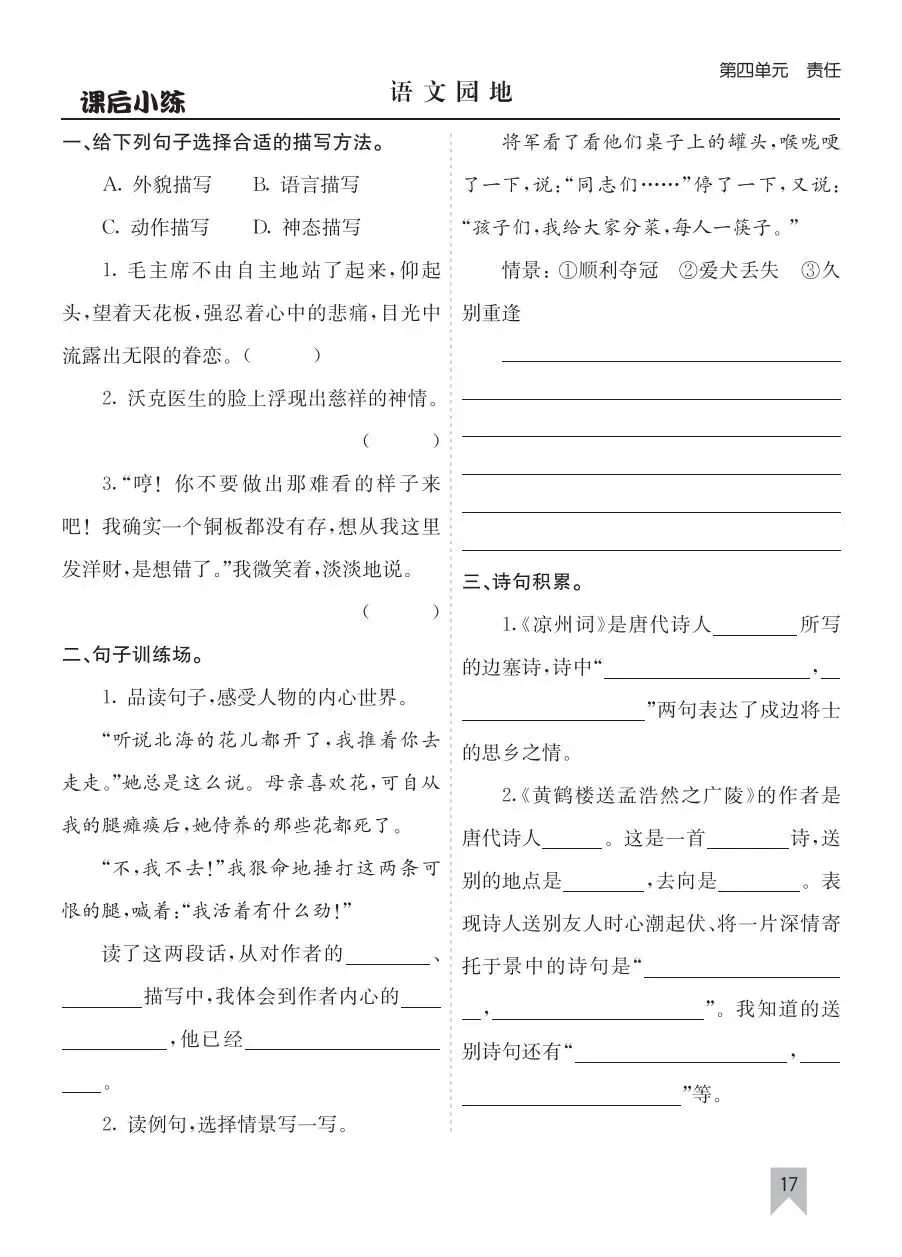 第四单元 责任
课后小练
语文园地
一、给下列句子选择合适的描写方法。
A. 外貌描写 B. 语言描写
C. 动作描写 D. 神态描写
1. 毛主席不由自主地站了起来,仰起
头,望着天花板,强忍着心中的悲痛,目光中
流露出无限的眷恋。( )
2. 沃克医生的脸上浮现出慈祥的神情。
( )
3.“哼! 你不要做出那难看的样子来
吧! 我确实一个铜板都没有存,想从我这里
发洋财,是想错了。”我微笑着,淡淡地说。
( )
二、句子训练场。
1. 品读句子,感受人物的内心世界。
“听说北海的花儿都开了,我推着你去
走走。”她总是这么说。母亲喜欢花,可自从
我的腿瘫痪后,她侍养的那些花都死了。
“不,我不去!”我狠命地捶打这两条可
恨的腿,喊着:“我活着有什么劲!”
读了这两段话,从对作者的________、
________描写中,我体会到作者内心的____
__________,他已经__________________
____。
2. 读例句,选择情景写一写。
将军看了看他们桌子上的罐头,喉咙哽
了一下,说:“同志们……”停了一下,又说:
“孩子们,我给大家分菜,每人一筷子。”
情景: ①顺利夺冠 ②爱犬丢失 ③久
别重逢
三、诗句积累。
1.《凉州词》是唐代诗人________所写
的边塞诗,诗中“____________________,__
__________________”两句表达了戍边将士
的思乡之情。
2.《黄鹤楼送孟浩然之广陵》的作者是
唐代诗人______。这是一首________诗,送
别的地点是________,去向是________。表
现诗人送别友人时心潮起伏、将一片深情寄
托于景中的诗句是“____________________
__,____________________”。我知道的送
别诗句还有“____________________,____
____________________”等。
17